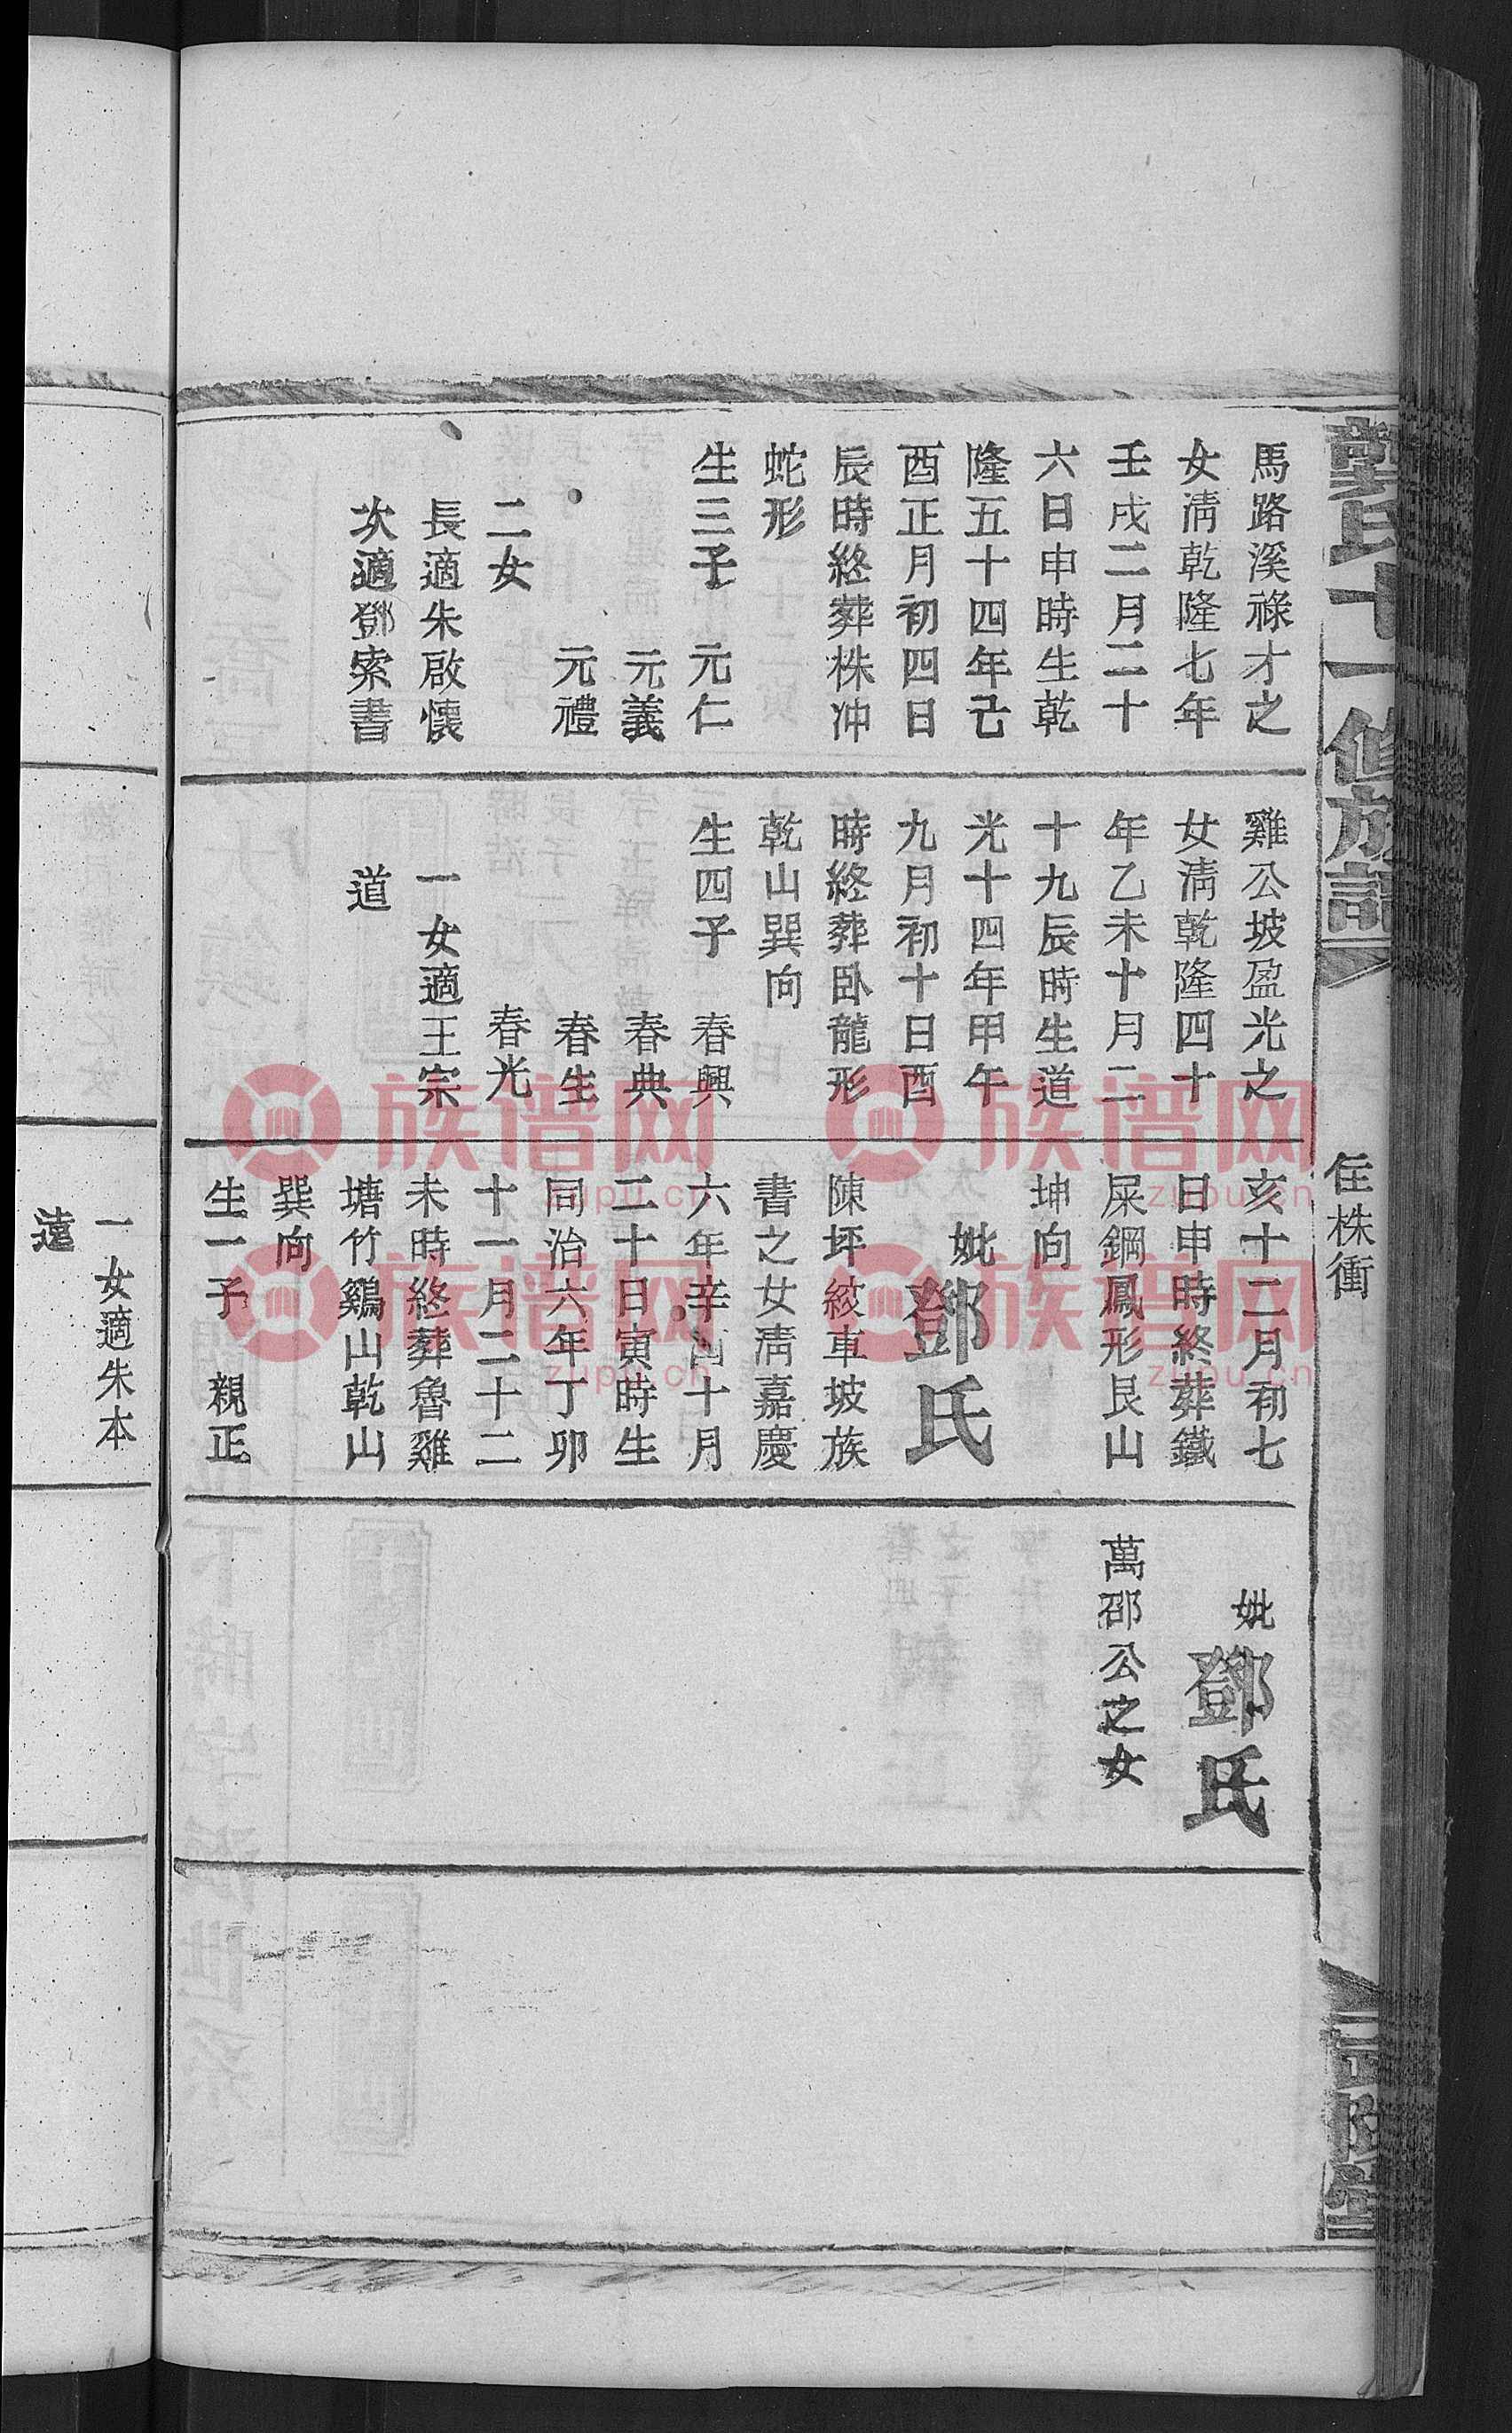 龔氏十一修族譜
住株衝
馬路溪祿才之
女淸乾隆七年
壬戌二月二十
六日申時生乾
隆五十四年己
酉正月初四日
辰時終葬株冲
蛇形
生三子　元仁
元義
元禮
二女
長適朱啟懷
次適鄧索書
雞公坡盈光之
女淸乾隆四十
年乙未十月二
十九辰時生道
光十四年甲午
九月初十日酉
時終葬卧龍形
乾山巽向
生四子　春興
春典
春生
春光
一女適王宗
道
亥十二月初七
日申時終葬鐵
屎鋼鳳形艮山
坤向
妣鄧氏
陳坪絞車坡族
書之女淸嘉慶
六年辛酉十月
二十日寅時生
同治六年丁卯
十一月二十二
未時終葬魯雞
塘竹鷄山乾山
巽向
生一子　親正
妣鄧氏
萬邵公之女
一女適朱本
遠
族谱网
zupu.cn
族谱网
zupu.cn
族谱网
zupu.cn
族谱网
zupu.cn